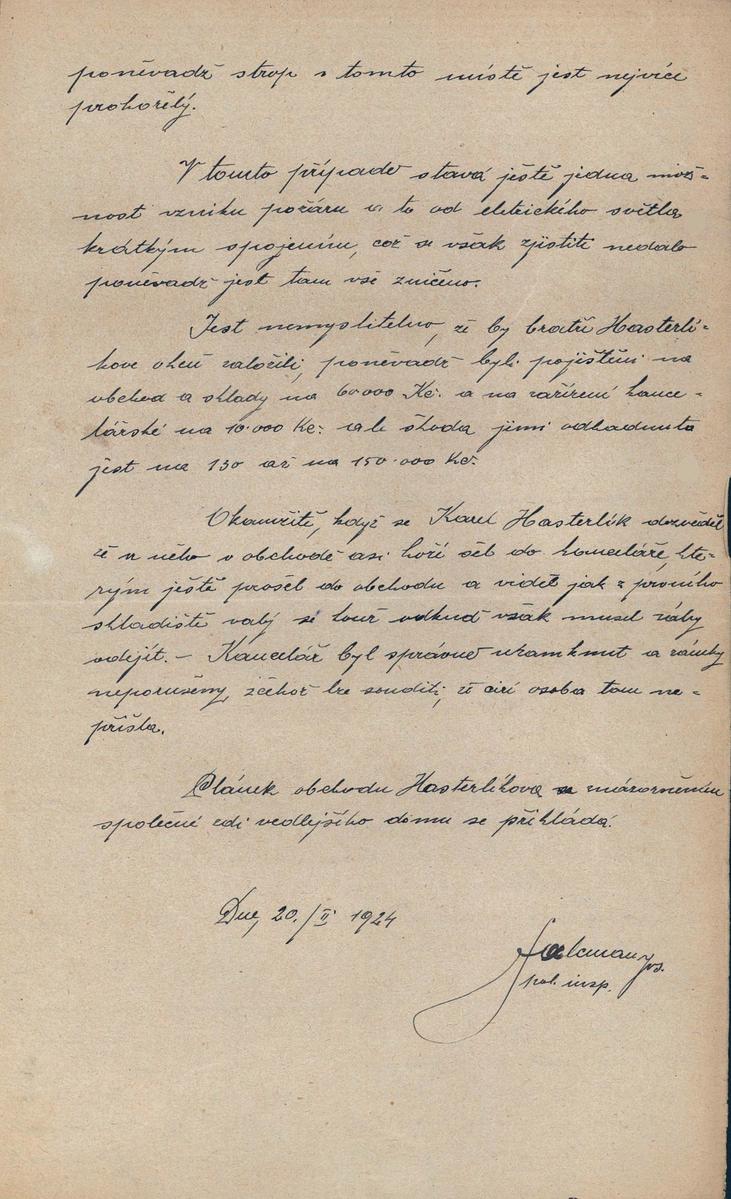 poněvadž strop s tomto místě jest nejvíce
prohořělý.
V tomto případě stává ještě jedna mož=
nost vzniku požáru a to od eletrického světla
krátkým spojením, což se však zjistiti nedalo
poněvadž jest tam vše zničeno.
Jest nemyslitelno, že by bratři Hasterlí=
kove oheň založili, poněvadž byli pojištěni na
obchod a sklady na 60000 Kč. a na zařízení kance=
lářské na 10.000 Kč. ale škoda jimi odhadnuta
jest na 130 až na 150.000 Kč.
Okamžitě, když se Karel Hasterlík dozvěděl
že u něho v obchodě asi hoří šel do kanceláře, kte=
rým ještě prošel do obchodu a viděl jak z prvního
skladiště valý se kouř odkud však musel záhy
odejít. – Kancelář byl správně uzamknut a zámky
neporušeny, z čehož lze souditi, že cizí osoba tam ne=
přišla.
Plánek obchodu Hasterlíkova se znázorněním
společné zdi vedlejšího domu se přikládá.
Dne, 20./II. 1924
pol. insp.